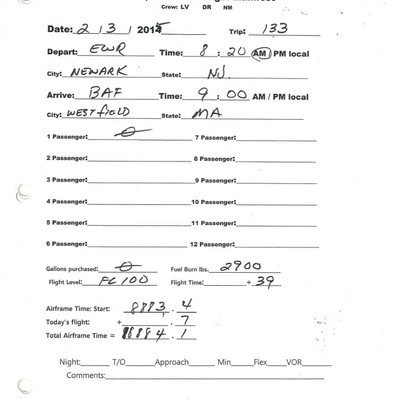 Crew: LV DR NM
Date: 2 / 3 / 2015 Trip: 133
Depart: EWR Time: 8 : 20 AM / PM local
City: NEWARK State: NJ.
Arrive: BAF Time: 9 : 00 AM / PM local
City: WESTFIELD State: MA
1 Passenger: 0 7 Passenger:
2 Passenger: 8 Passenger:
3 Passenger: 9 Passenger:
4 Passenger: 10 Passenger:
5 Passenger: 11 Passenger:
6 Passenger: 12 Passenger:
Gallons purchased: 0 Fuel Burn lbs. 2900
Flight Level: FL100 Flight Time: + 39
Airframe Time: Start: 8883 . 4
Today's flight: + . 7
Total Airframe Time = 8884 . 1
Night: T/O Approach Min Flex VOR
Comments: